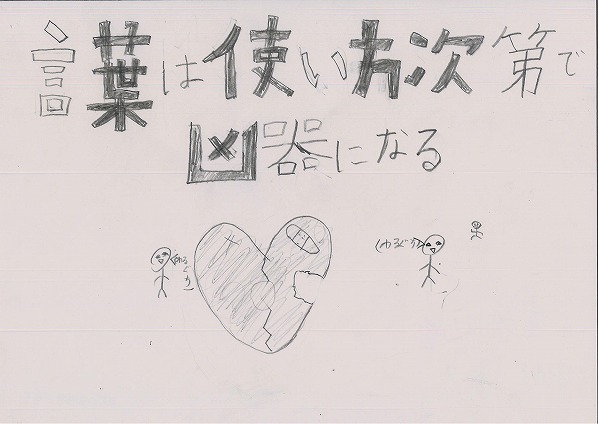 言葉は使い方次第で
凶器になる
わるぐち
わるぐち